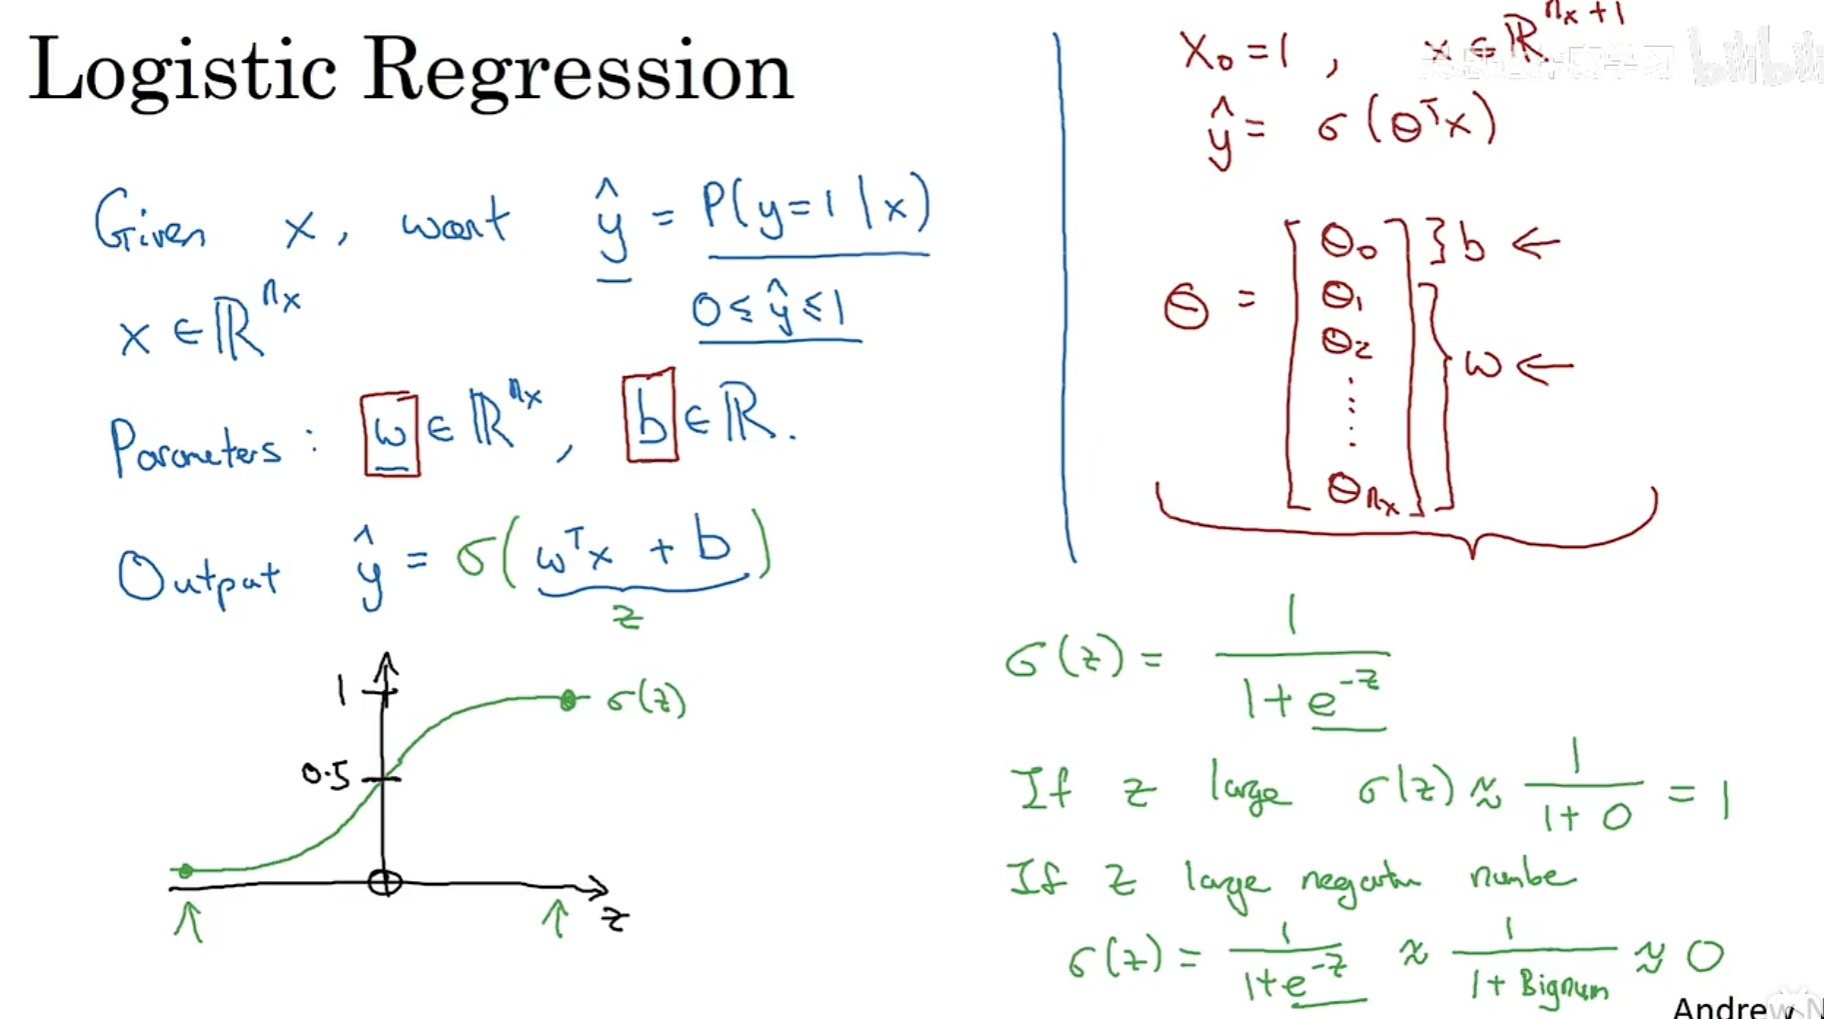 Logistic Regression
Given x, want ŷ = P(y=1|x)
0 ≤ ŷ ≤ 1
x ∈ ℝ^{n_x}
Parameters: w ∈ ℝ^{n_x}, b ∈ ℝ.
Output ŷ = σ(w^T x + b)
z
1
σ(z)
0.5
z
x_0 = 1, x ∈ ℝ^{n_x+1}
ŷ = σ(θ^T x)
θ = [θ_0 θ_1 θ_2 ⋮ θ_{n_x}]
} b ←
} w ←
σ(z) = 1/(1+e^{-z})
If z large σ(z) ≈ 1/(1+0) = 1
If z large negative number
σ(z) = 1/(1+e^{-z}) ≈ 1/(1+Bignum) ≈ 0
Andrew N
bilibili